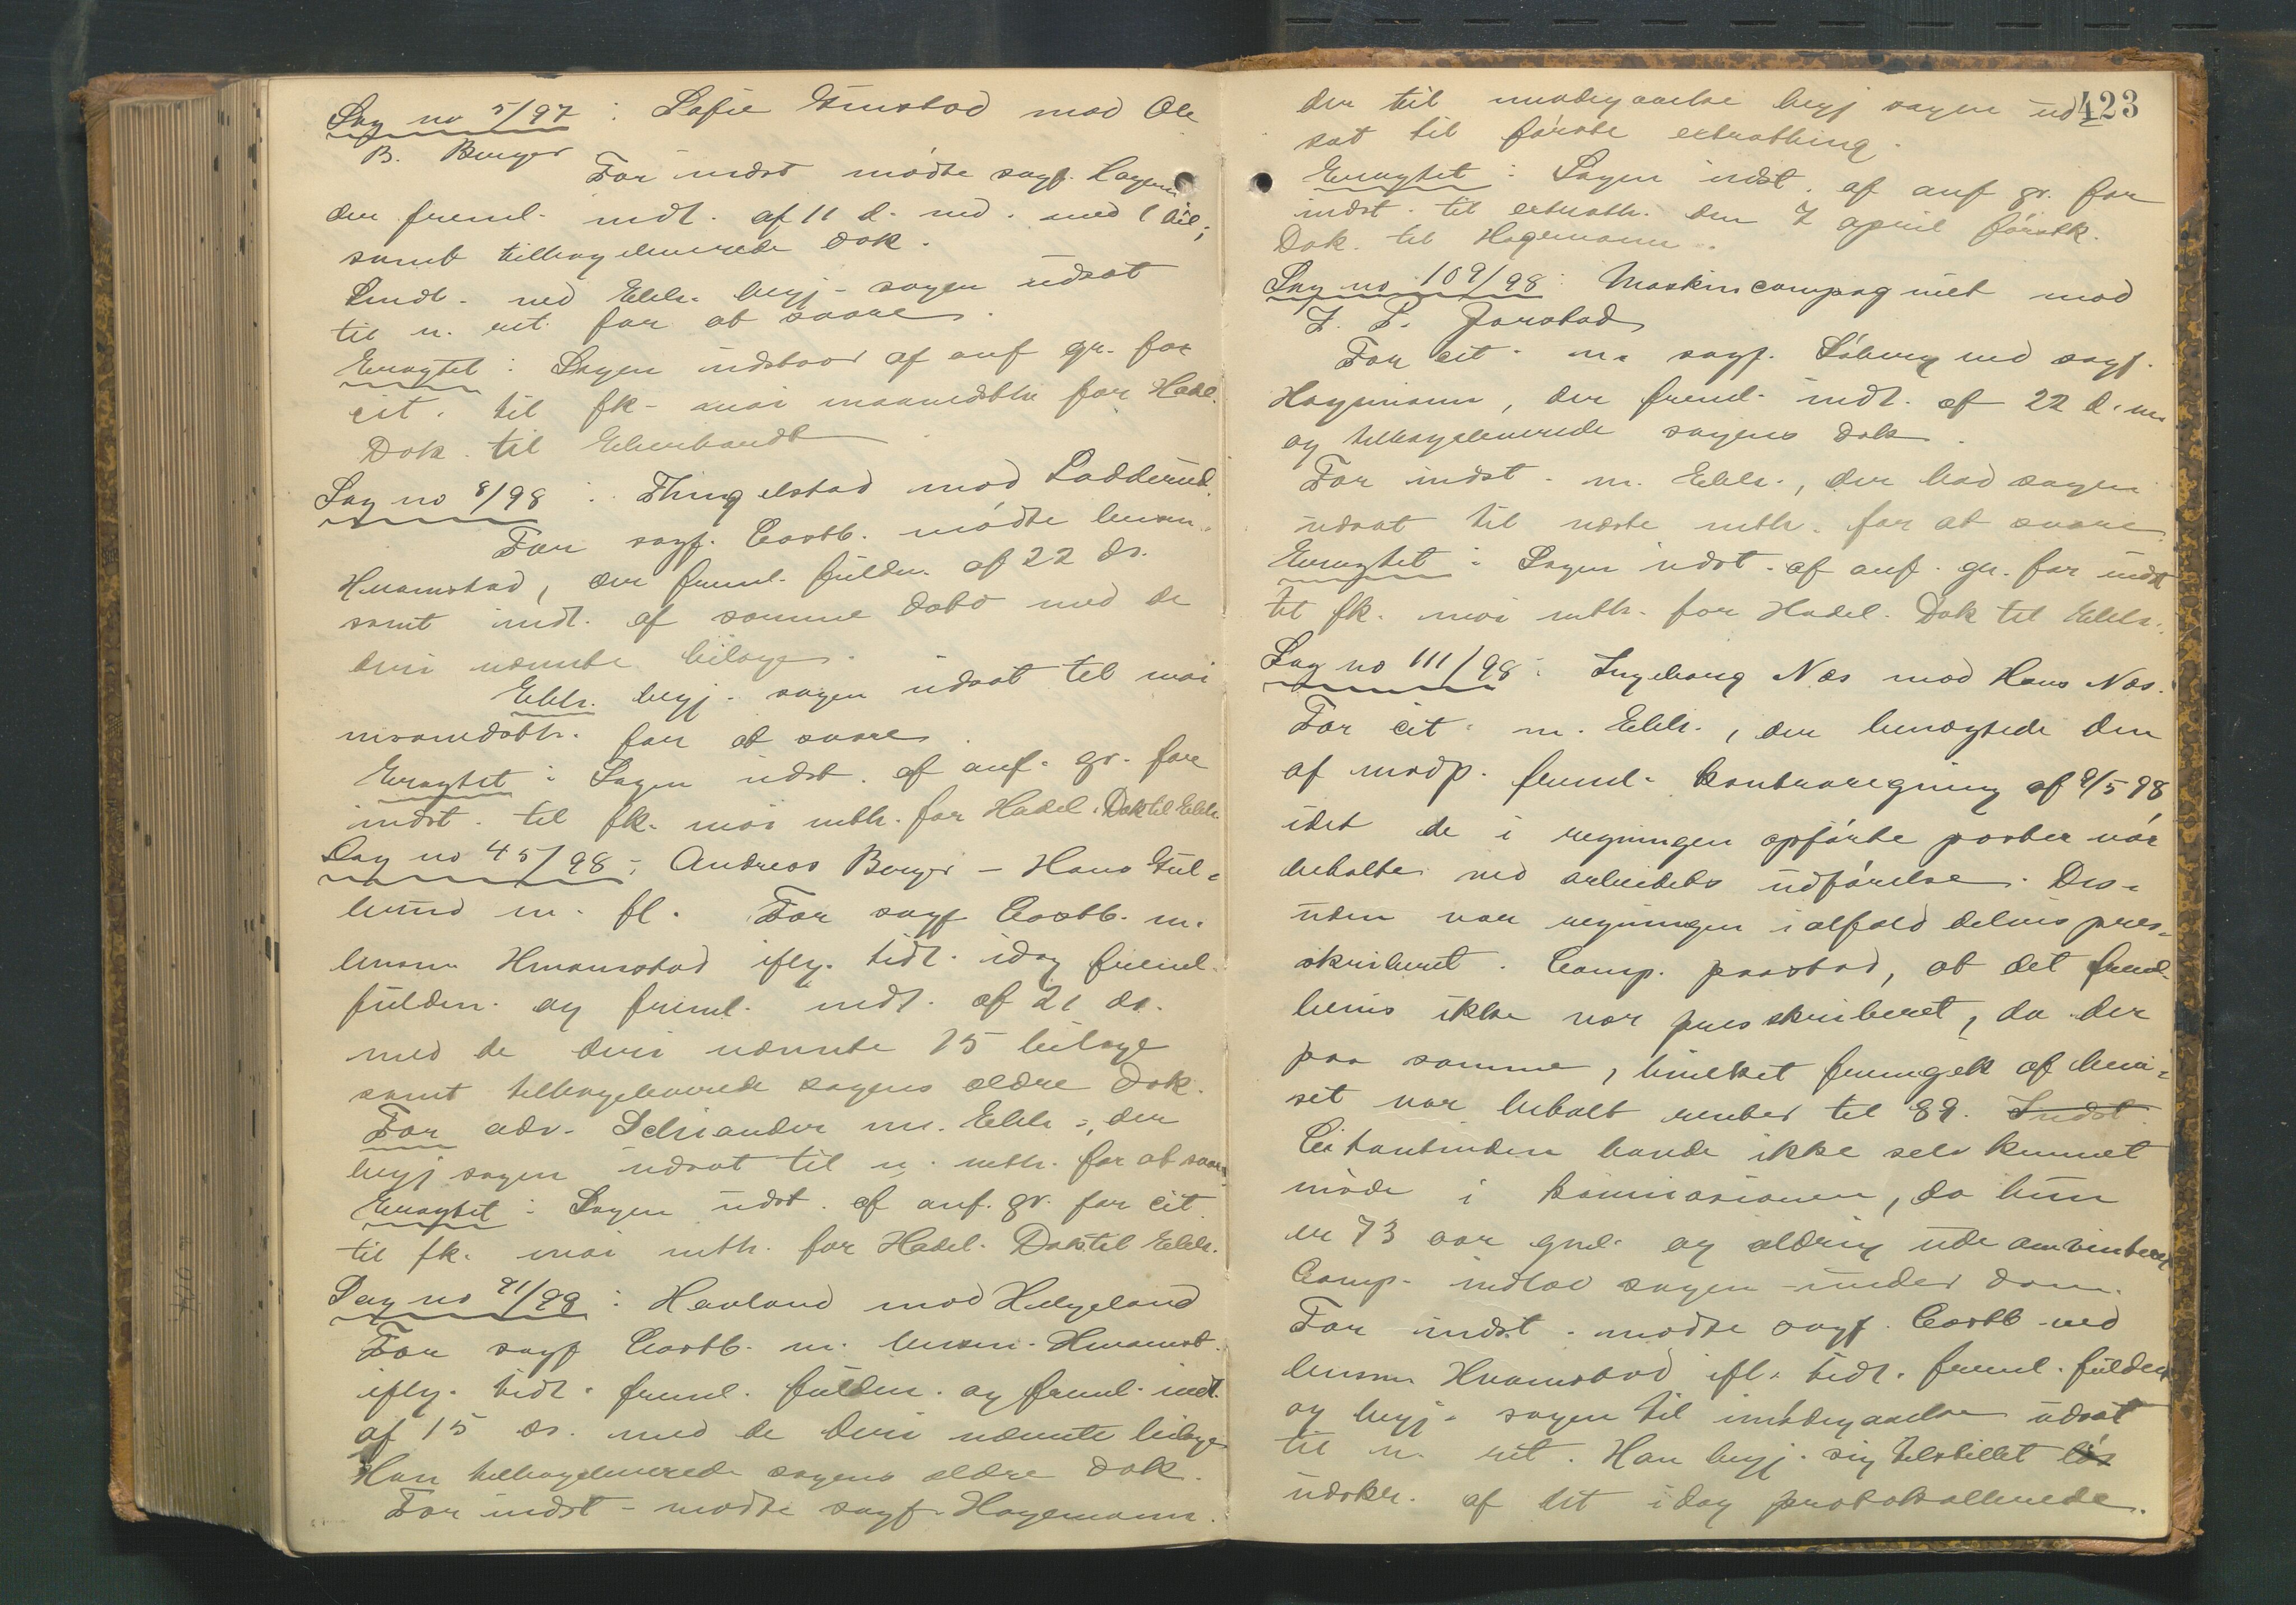 Sag no 5/97 : Sofie Grinstad mod Ole
B. Berger
For indst mødte sagf. Hagem
der freml. indl. af 11 d. md. med 1 bil.;
samt tilbageleverede dok.
Lindl. ved Ebh. begj. sagen udsat
til n. ret for at svare.
Eragtet : Sagen udstaar af anf gr. for
cit. til fk. mai maanedsth for Hadel.
Dok. til Eberhardt
Sag no 8/98 : Thingelstad mod Ladderud.
For sagf. Castb. mødte lensm.
Hvamstad, der freml. fuldm. af 22 ds.
samt indl. af samme dato med de
deri nævnte bilage.
Ebh. begj. sagen udsat til mai
maanedsth. for at svare.
Eragtet : Sagen udst. af anf. gr. for
indst. til fk. mai mth. for Hadel. Dok til Ebh.
Sag no 45/98 : Andreas Berger - Hans Gul-
lund m. fl. For sagf Castb. m.
lensm Hvamstad iflg. tidl. idag freml.
fuldm. og freml. indl. af 21 ds.
med de deri nævnte 15 bilage
samt tilbageleverede sagens ældre dok.
For adv. Schiander m. Ebh., der
begj sagen udsat til n. mth. for at svare
Eragtet : Sagen udst. af anf. gr. for cit.
til fk. mai mth. for Hadel. Dok til Ebh.
Sag no 91/98 : Havland mod Helgeland
For sagf Castb. m. lensm. Hvamst.
iflg. tidl. freml. fuldm. og freml. indl.
af 15 ds. med de deri nævnte bilage
Han tilbageleverede sagens ældre dok.
For indst - mødte sagf. Hagemann
423
der til imødegaaelse begj sagen ud-
sat til første extrathing.
Eragtet : Sagen udst. af anf gr. for
indst. til extrath. den 7 april førstk.
Dok. til Hagemann.
Sag no 109/98 : Maskincompagniet mod
J. L. Jarstad
For cit. m. sagf. Søberg ved sagf.
Hagemann, der freml. indl. af 22 d. m.
og tilbageleverede sagens dok.
For indst. m. Ebh., der bad sagen
udsat til næste mth. for at svare
Eragtet : Sagen udst. af anf. gr. for indst
til fk. mai mth. for Hadel. Dok til Ebh.
Sag no 111/98 : Ingeborg Næs mod Hans Næs.
For cit. m. Ebh., der benægtede den
af modp. freml. kontraregning af 9/5 98
idet de i regningen opførte poster var
betalte ved arbeidets udførelse. Des-
uden var regningen i alfald delvis pres-
skriberet. Comp. paastod, at det freml.
bevis ikke var presskriberet, da der
paa samme, hvilket fremgik af bevi-
set var betalt renter til 89. Indst.
Citantinden havde ikke selv kunnet
møde i kommissionen, da hun
er 73 aar gml. og aldrig ude om vinteren
Comp. indlod sagen under dom.
For indst. mødte sagf. Castb ved
lensm Hvamstad ifl. tidl. freml. fuldm
og begj. sagen til imødegaaelse udsat
til n. ret. Han begj. sig tilstillet løs
udskr. af det idag protokollerede.